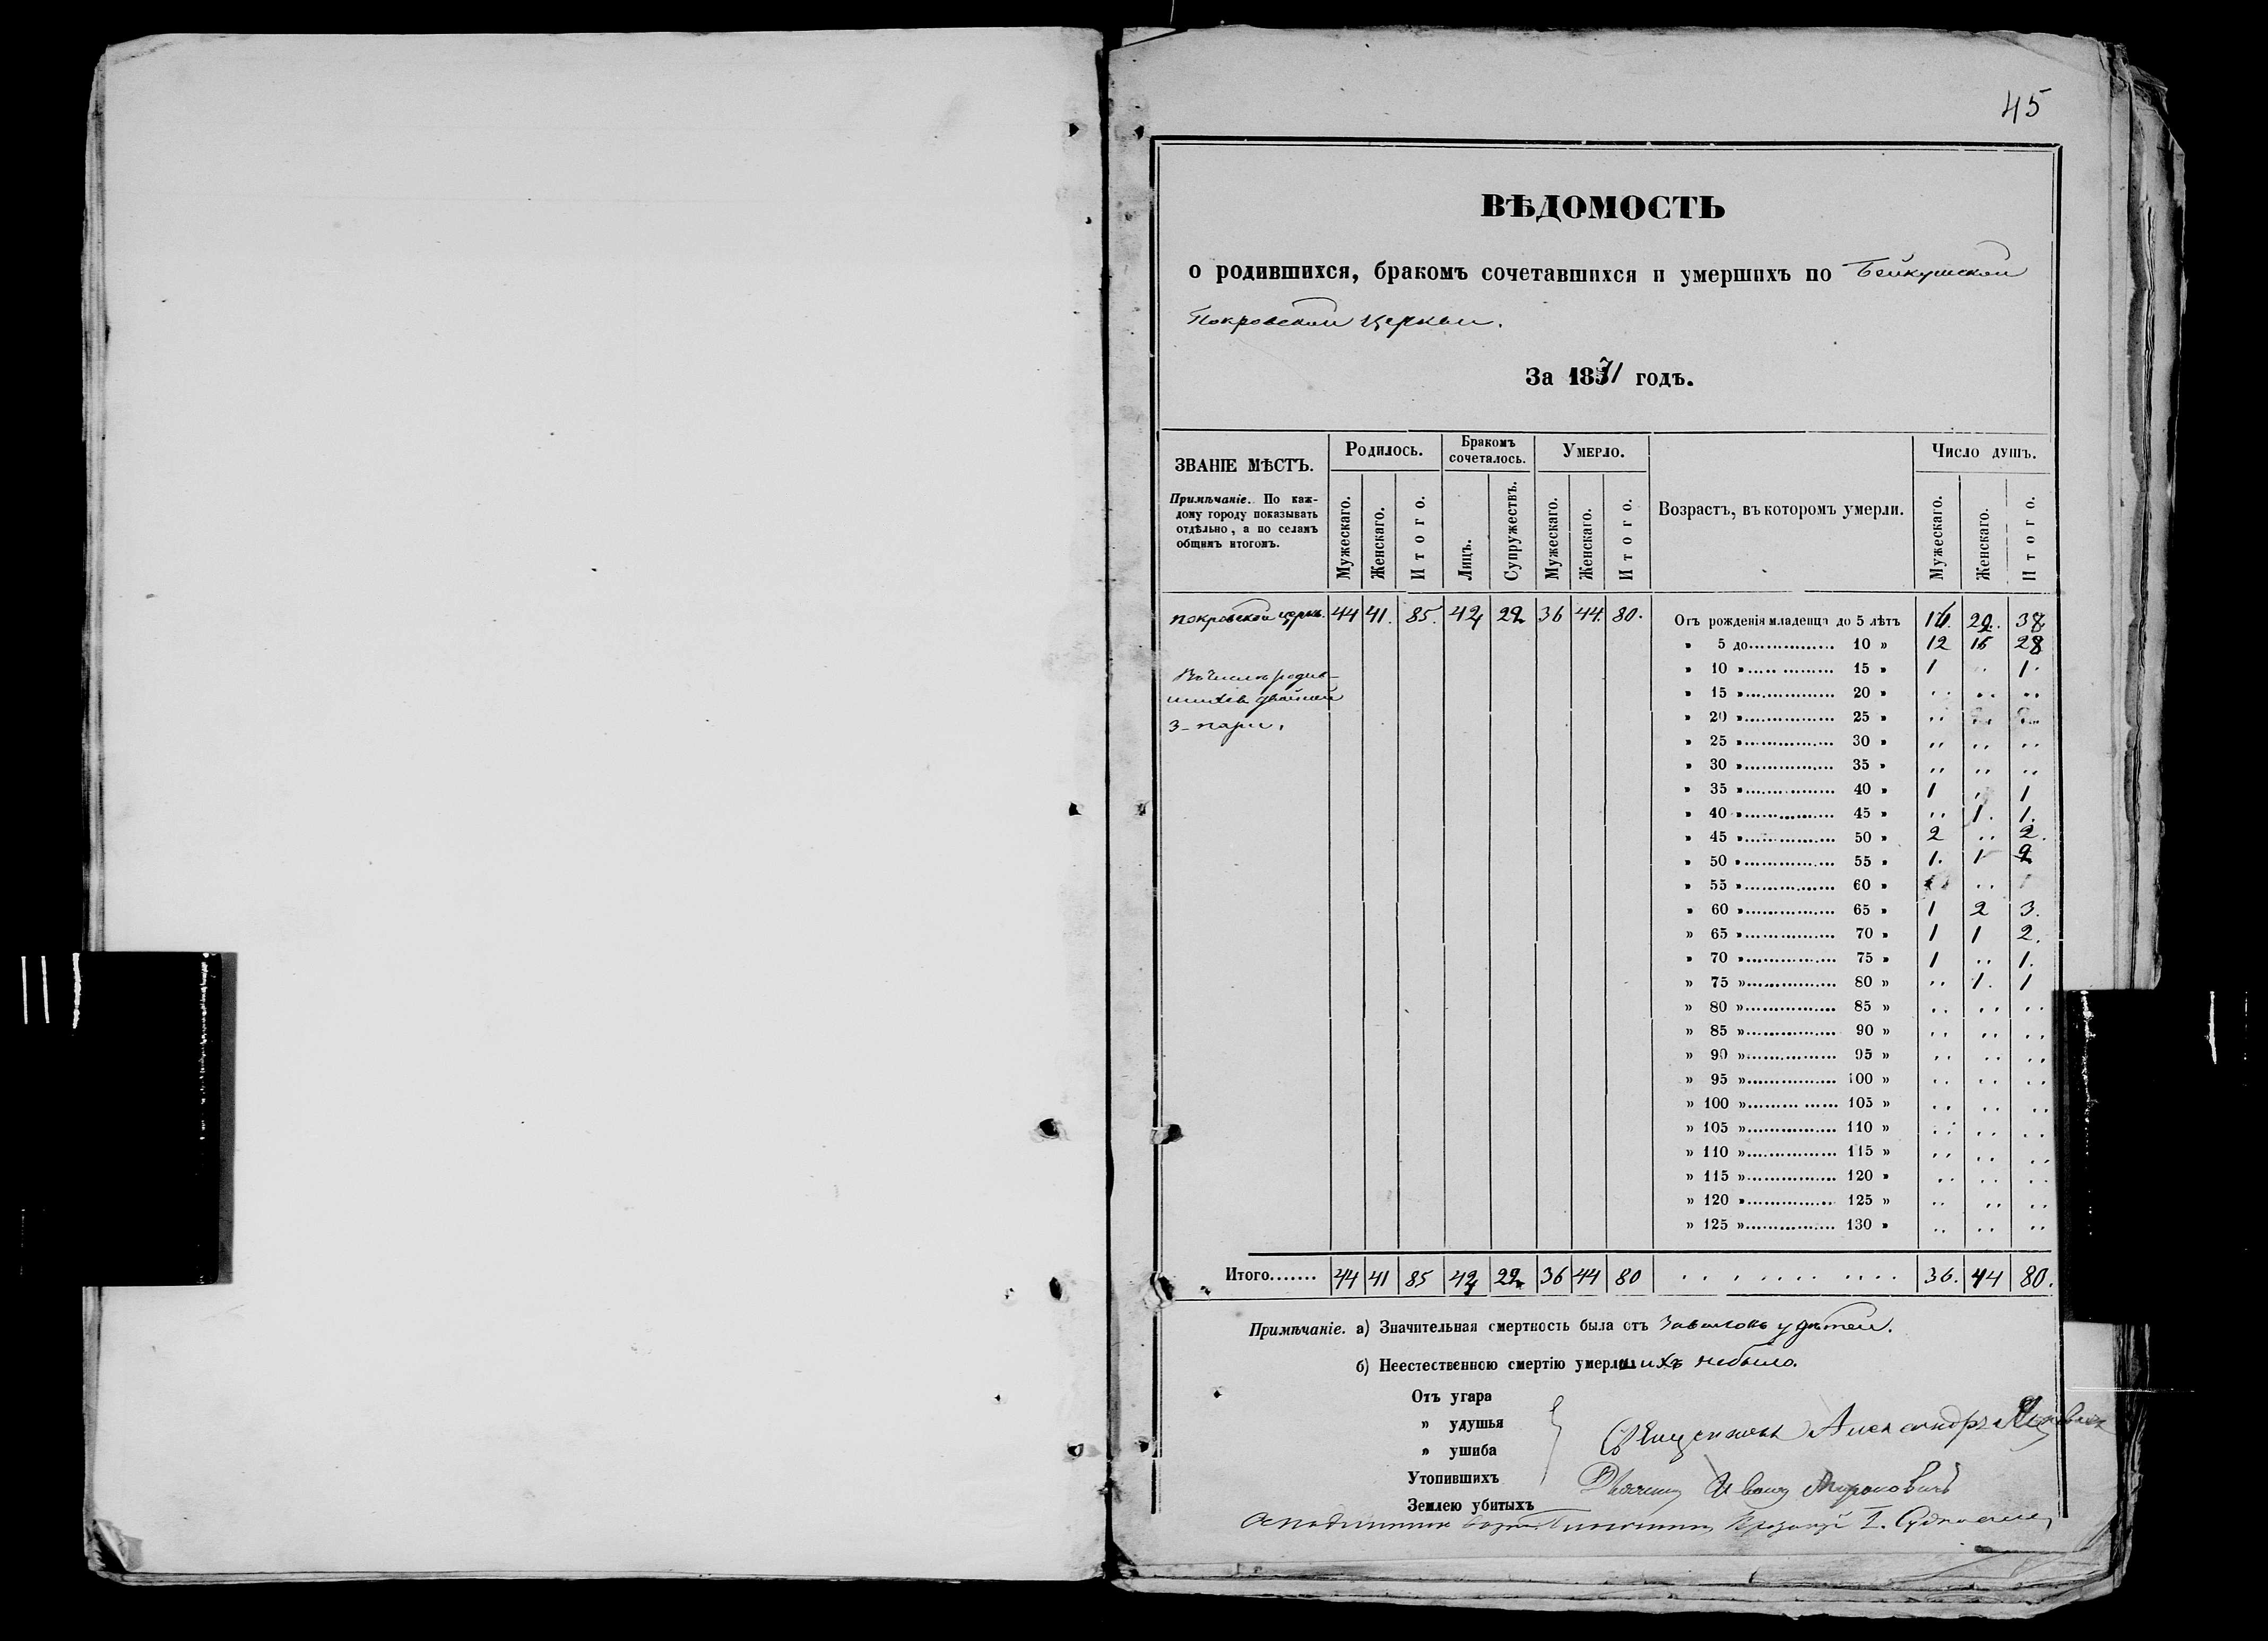 45
ВѢДОМОСТЬ
о родившихся, бракомъ сочетавшихся и умершихъ по Бейкушской
Покровской церкви.
За 1871 годъ.
ЗВАНІЕ МѢСТЪ.
Примѣчаніе. По каж-
дому городу показывать
отдѣльно, а по селамъ
общимъ итогомъ.
Родилось. Бракомъ сочеталось. Умерло. Возрастъ, въ которомъ умерли. Число душъ.
Мужескаго. Женскаго. Итого. Лицъ. Супружествъ. Мужескаго. Женскаго. Итого. Мужескаго. Женскаго. Итого.
покровской церкв. 44 41. 85. 36 44. 80.
Въ числѣ родив-
шихся двойней
3 - пары.
Отъ рождения младенца до 5 лѣтъ 16. 22. 38
» 5 до 10 » 12 16 28
» 10 » 15 » 1 .. 1.
» 15 » 20 » .. .. ..
» 20 » 25 » .. .. ..
» 25 » 30 » .. .. ..
» 30 » 35 » .. .. ..
» 35 » 40 » 1 .. 1
» 40 » 45 » .. 1. 1.
» 45 » 50 » 2 .. 2.
» 50 » 55 » 1. 1 2
» 55 » 60 » ..
» 60 » 65 » 1 2 3.
» 65 » 70 » 1 1 2.
» 70 » 75 » 1 .. 1.
» 75 » 80 » .. 1. 1
» 80 » 85 » .. .. ..
» 85 » 90 » .. .. ..
» 90 » 95 » .. .. ..
» 95 » 100 » .. .. ..
» 100 » 105 » .. .. ..
» 105 » 110 » .. .. ..
» 110 » 115 » .. .. ..
» 115 » 120 » .. .. ..
» 120 » 125 » .. .. ..
» 125 » 130 » .. .. ..
Итого....... 44 41 85 36 44 80 36. 44 80.
Примѣчаніе. а) Значительная смертность была отъ завалокъ у дѣтей.
б) Неестественною смертію умершихъ небыло.
Отъ угара
» удушья
» ушиба
Утопившихъ
Землею убитыхъ
Священникъ Александръ
Дьячекъ Иванъ Мироновичъ